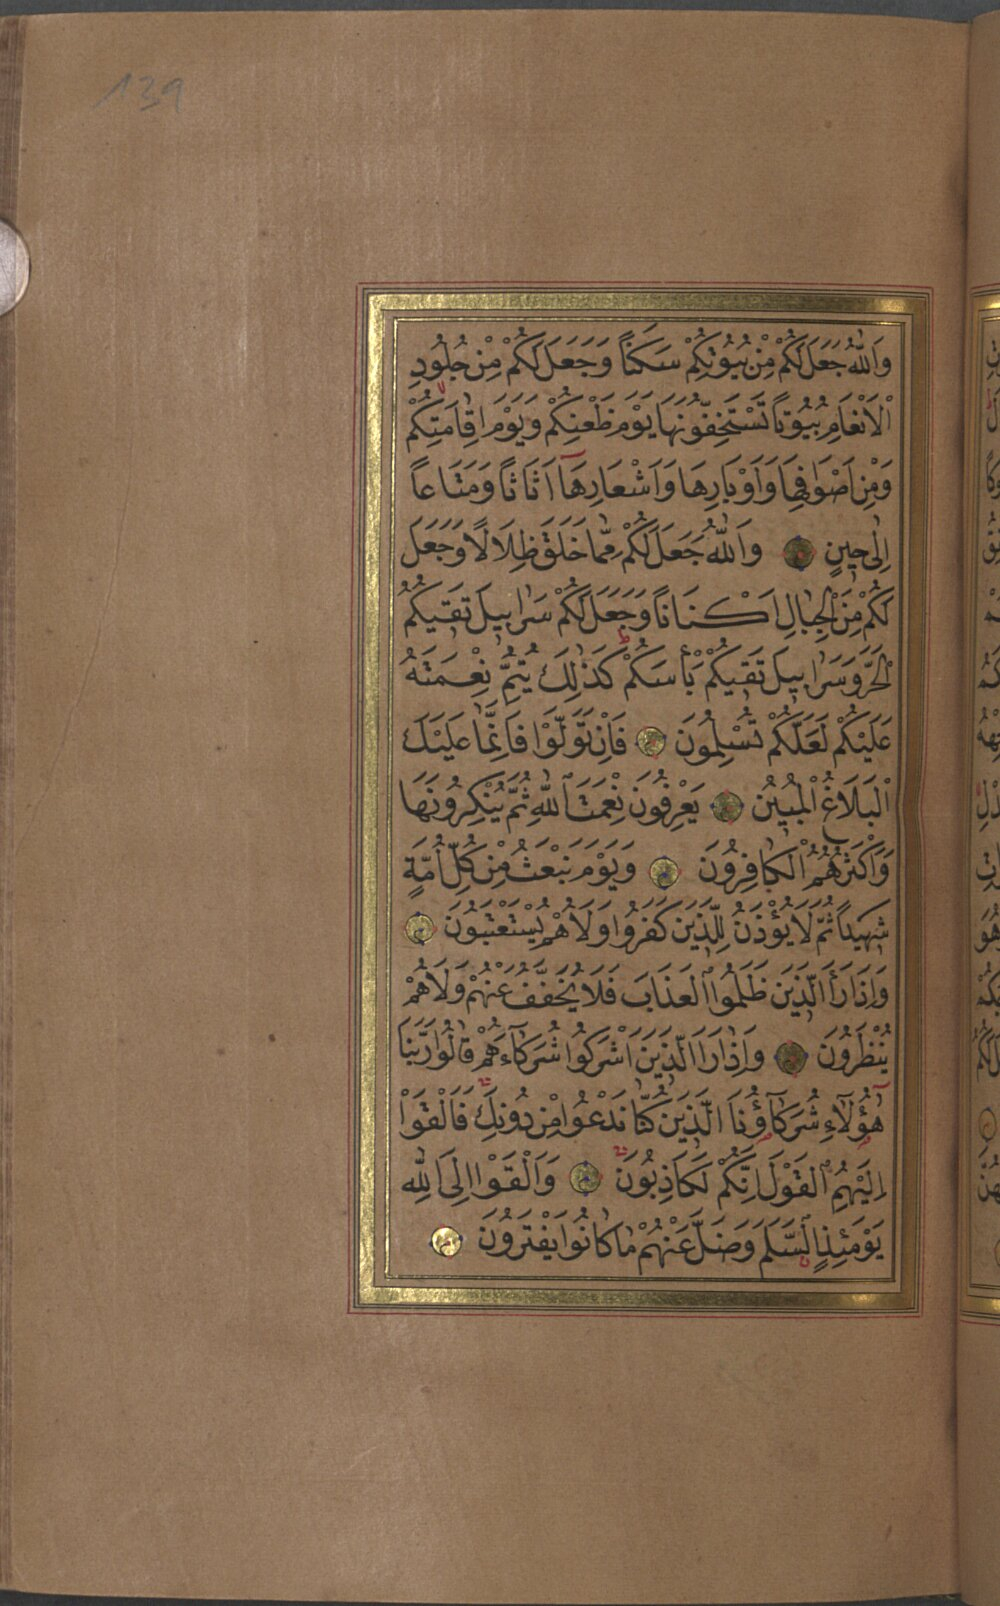 139
وَاللّٰهُ جَعَلَ لَكُمْ مِنْ بُيُوتِكُمْ سَكَنًا وَجَعَلَ لَكُمْ مِنْ جُلُودِ
الْاَنْعَامِ بُيُوتًا تَسْتَخِفُّونَهَا يَوْمَ ظَعْنِكُمْ وَيَوْمَ اِقَامَتِكُمْ
وَمِنْ اَصْوَافِهَا وَاَوْبَارِهَا وَاَشْعَارِهَٓا اَثَاثًا وَمَتَاعًا
اِلٰى حِينٍ وَاللّٰهُ جَعَلَ لَكُمْ مِمَّا خَلَقَ ظِلَالًا وَجَعَلَ
لَكُمْ مِنَ الْجِبَالِ اَكْنَانًا وَجَعَلَ لَكُمْ سَرَابِيلَ تَقِيكُمُ
الْحَرَّ وَسَرَابِيلَ تَقِيكُمْ بَأْسَكُمْ كَذٰلِكَ يُتِمُّ نِعْمَتَهُ
عَلَيْكُمْ لَعَلَّكُمْ تُسْلِمُونَ فَاِنْ تَوَلَّوْا فَاِنَّمَا عَلَيْكَ
الْبَلَاغُ الْمُبِينُ يَعْرِفُونَ نِعْمَتَ اللّٰهِ ثُمَّ يُنْكِرُونَهَا
وَاَكْثَرُهُمُ الْكَافِرُونَ وَيَوْمَ نَبْعَثُ مِنْ كُلِّ اُمَّةٍ
شَهِيدًا ثُمَّ لَا يُؤْذَنُ لِلَّذِينَ كَفَرُوا وَلَا هُمْ يُسْتَعْتَبُونَ
وَاِذَا رَاَ الَّذِينَ ظَلَمُوا الْعَذَابَ فَلَا يُخَفَّفُ عَنْهُمْ وَلَا هُمْ
يُنْظَرُونَ وَاِذَا رَاَ الَّذِينَ اَشْرَكُوا شُرَكَٓاءَهُمْ قَالُوا رَبَّنَا
هٰٓؤُلَٓاءِ شُرَكَٓاؤُنَا الَّذِينَ كُنَّا نَدْعُوا مِنْ دُونِكَ فَاَلْقَوْا
اِلَيْهِمُ الْقَوْلَ اِنَّكُمْ لَكَاذِبُونَ وَاَلْقَوْا اِلَى اللّٰهِ
يَوْمَئِذٍ السَّلَمَ وَضَلَّ عَنْهُمْ مَا كَانُوا يَفْتَرُونَ